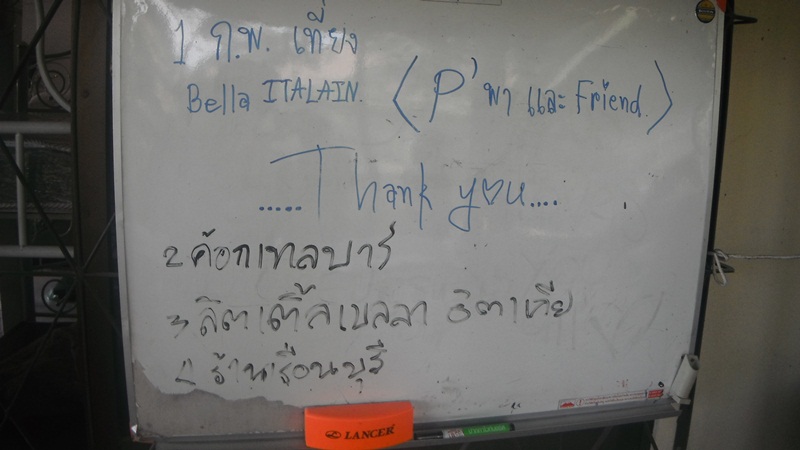 1 ก.พ. เที่ยง
Bella ITALAIN. (P' พา และ Friend.)
.....Thank you....
2 ค๊อกเทลบาร์
3 ลิตเติ้ลเบลลา อิตาเลีย
4 ร้านเรือนบุรี
LANCER